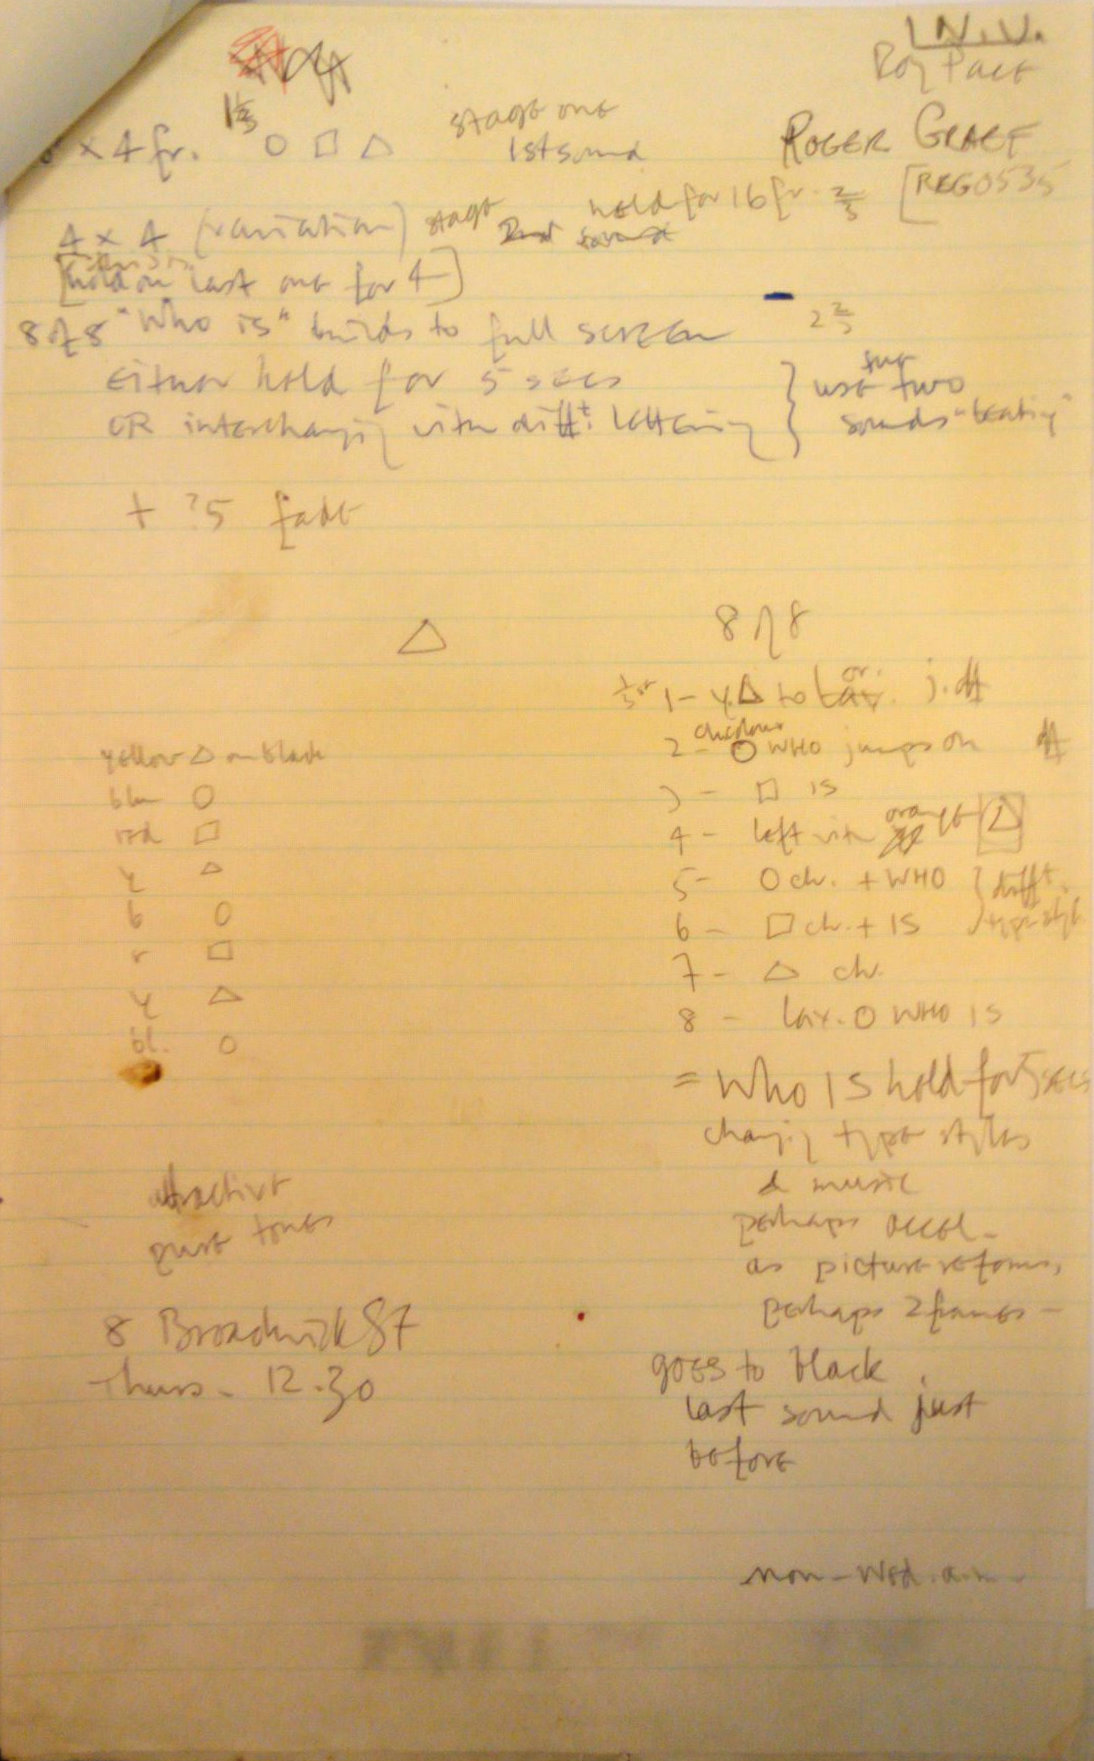 I.N.V.
Roy Pace
1⅓
× 4 fr. ○ □ △ stage one
1st sound
ROGER GRAEF
[REG 0535
4 × 4 (variation) stage held for 16 fr. ⅔
[hold on last one for 4]
8 of 8 "Who is" builds to full screen 2⅔
Either hold for 5 secs
OR interchanging with difft. lettering } use two
sounds "beating"
+ ?5 fade
△
8 of 8
1 - y. △ to or.
2 - ○ WHO jumps on
3 - □ IS
4 - left with orange △
5 - ○ ch. + WHO } difft.
6 - □ ch. + IS } type style
7 - △ ch.
8 - ○ WHO IS
= WHO IS hold for 5 secs
changing type styles
& music
perhaps accel.
as picture reforms,
perhaps 2 frames -
goes to black
last sound just
before
yellow △ on black
blu ○
red □
y △
b ○
r □
y △
bl. ○
attractive
pure tones
8 Broadwick St
Thurs - 12.30
mon - wed. a.m.